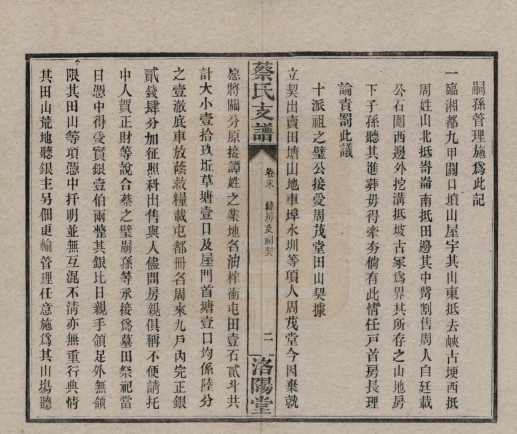 嗣孫管理施為此記
一臨湘都九甲關口墳山屋宇其山東抵去峽古埂西抵
周姓山北抵崙南抵田邊其中劵割售周人白廷載
公石圍西邊外挖溝抵坡古冢為界其所存之山地房
下子孫聽其進葬毋得紊夯倘有此情任戸首房長理
論責罰此議
十派祖之璧公接受周茂堂田山契據
立契出賣田塘山地車埠水圳等項人周茂堂今因棄就
愿將關分原接譚姓之業地名油榨衝屯田壹石貳斗共
計大小壹拾玖坵草塘壹口及屋門首塘壹口均係陸分
之壹澈底車放蔭救糧載屯都册名周來九戸內完正銀
貳錢肆分加征照科出售與人儘問房親俱稱不便請托
中人賀正財等說合蔡之璧嗣孫等承接為墓田祭祀當
日憑中得受實銀壹伯兩整其銀比日親手領足外無領
限其田山等項憑中扦明並無互混不清亦無重行典情
其田山荒地聽銀主另佃更輸管理任意施為其山場聽
蔡氏支譜
卷末
緯房支祠契
二
洛陽堂